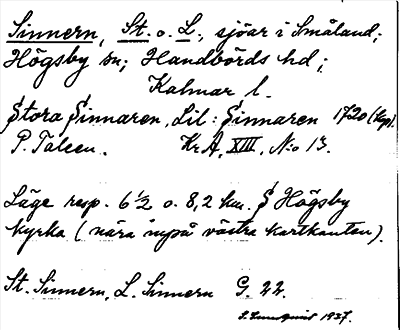 Sinnern, St. o. L., sjöar i Småland;
Högsby sn; Handbörds hd;
Kalmar l.
Stora Sinnaren, Lil: Sinnaren 1720 (kop).
P. Taleen. Kr A, XIII, N:o 13.
Läge resp. 6 1/2 o. 8,2 km. S Högsby
kyrka (nära inpå västra kartkanten).
St. Sinnern, L. Sinnern G. 22.
1937.